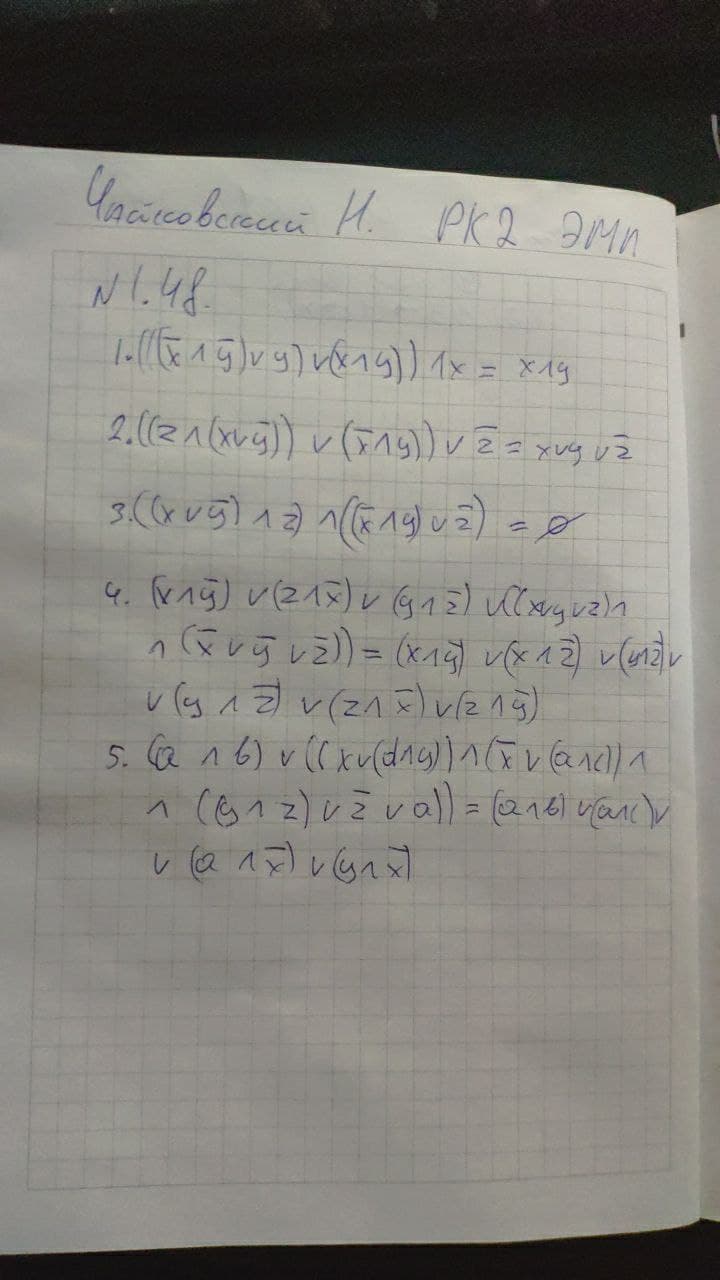 Чайковский Н. РК2 ЭМП
N 1.48.
1. (((x̄∧ȳ)∨y)∨(x∧y))∧x = x∧y
2. ((z∧(x∨ȳ))∨(x̄∧y))∨z̄ = x∨y∨z̄
3. ((x∨ȳ)∧z)∧((x̄∧y)∨z̄) = ∅
4. (x∧ȳ)∨(z∧x̄)∨(y∧z̄)∨((x∨y∨z)∧
∧(x̄∨ȳ∨z̄)) = (x∧ȳ)∨(x∧z̄)∨(y∧z̄)∨
∨(y∧z̄)∨(z∧x̄)∨(z∧ȳ)
5. (a∧b)∨((x∨(d∧y))∧(x̄∨(a∧c))∧
∧(y∧z)∨z̄∨a)) = (a∧b)∨(a∧c)∨
∨(a∧x̄)∨(y∧x̄)